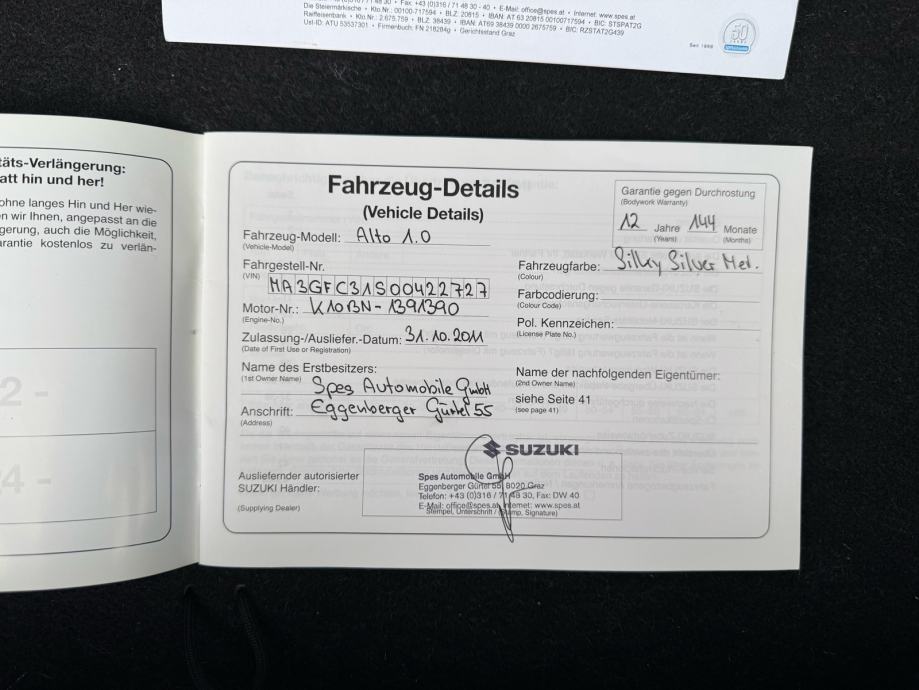 Fax +43 (0)316 / 71 48 30 - 40 • E-Mail: office@spes.at • Internet: www.spes.at
Die Steiermärkische • Kto.Nr.: 00100-717594 • BLZ: 20815 • IBAN: AT 63 20815 00100717594 • BIC: STSPAT2G
Raiffeisenbank • Kto.Nr.: 2.675.759 • BLZ: 38439 • IBAN: AT69 38439 0000 2675759 • BIC: RZSTAT2G439
Uid-ID: ATU 53537301 • Firmenbuch: FN 218284g • Gerichtsstand Graz
50
täts-Verlängerung:
att hin und her!
ohne langes Hin und Her wie-
n wir Ihnen, angepasst an die
gerung, auch die Möglichkeit,
arantie kostenlos zu verlän-
2 -
4 -
Fahrzeug-Details
(Vehicle Details)
Garantie gegen Durchrostung
(Bodywork Warranty)
12 Jahre 144 Monate
(Years) (Months)
Fahrzeug-Modell: Alto 1.0
(Vehicle-Model)
Fahrgestell-Nr.
(VIN) MA3GFC31S00422727
Motor-Nr.: K10BN-1391390
(Engine-No.)
Zulassung-/Ausliefer.-Datum: 31.10.2011
(Date of First Use or Registration)
Name des Erstbesitzers:
(1st Owner Name) Spes Automobile GmbH
Anschrift: Eggenberger Gürtel 55
(Address)
Fahrzeugfarbe: Silky Silver Met.
(Colour)
Farbcodierung:
(Colour Code)
Pol. Kennzeichen:
(License Plate No.)
Name der nachfolgenden Eigentümer:
(2nd Owner Name)
siehe Seite 41
(see page 41)
Ausliefernder autorisierter
SUZUKI Händler:
(Supplying Dealer)
SUZUKI
Spes Automobile GmbH
Eggenberger Gürtel 55, 8020 Graz
Telefon: +43 (0)316 / 71 48 30, Fax: DW 40
E-Mail: office@spes.at, Internet: www.spes.at
Stempel, Unterschrift / (Stamp, Signature)